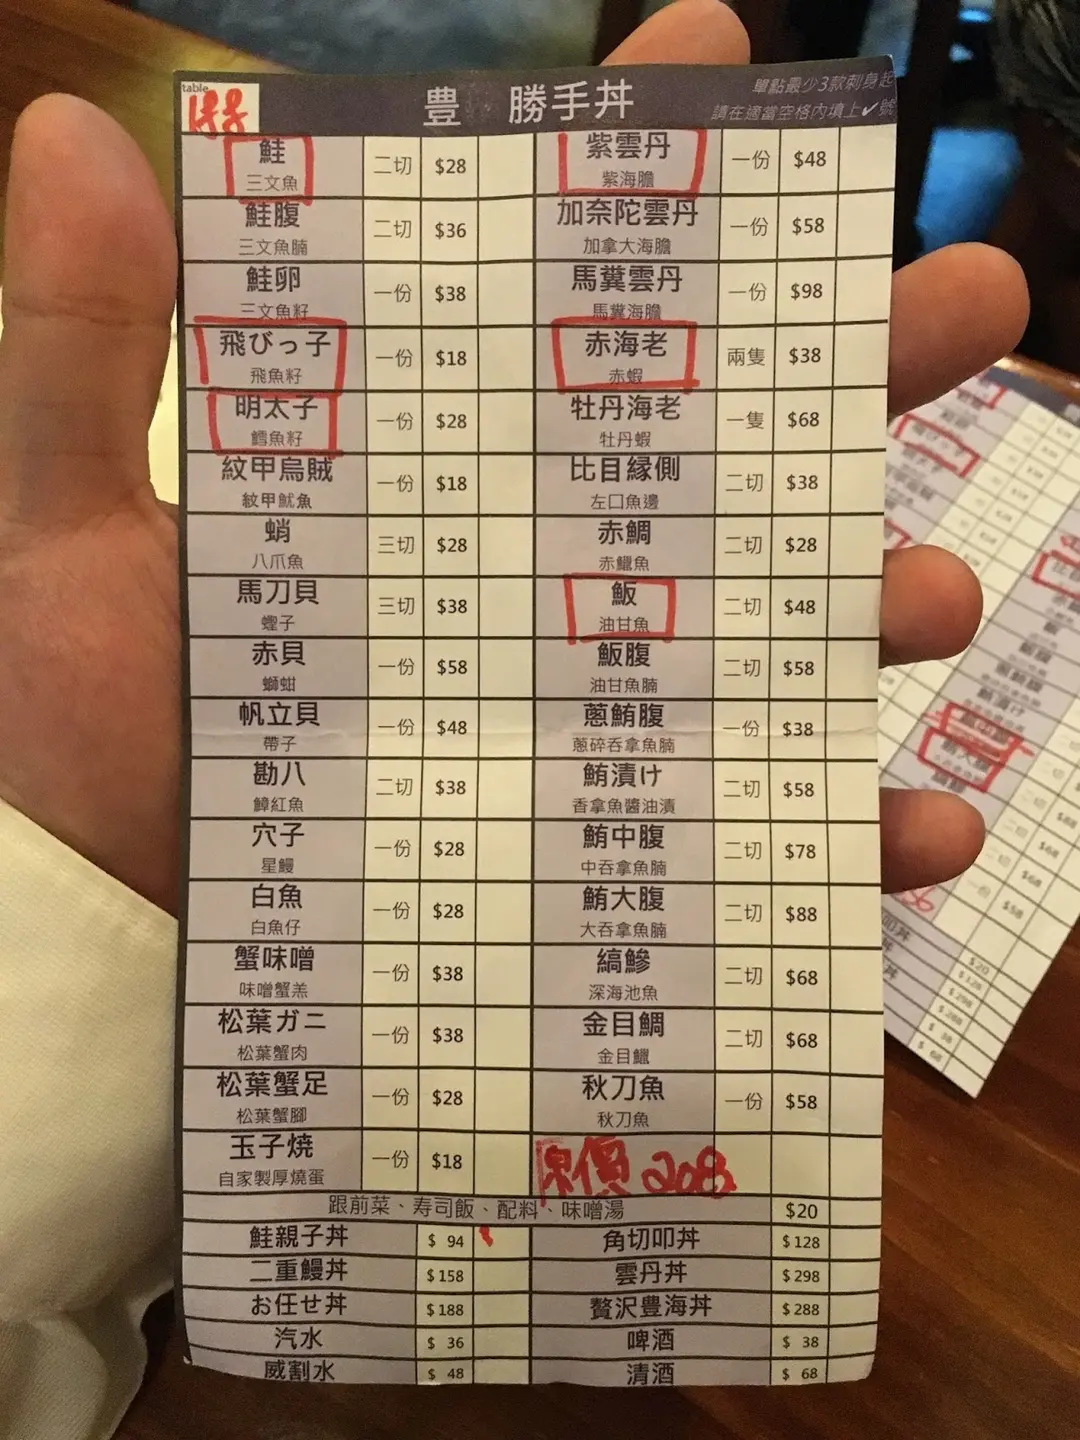 table
豊 勝手丼
單點最少3款刺身起
請在適當空格內填上✓號
鮭 二切 $28
三文魚
鮭腹 二切 $36
三文魚腩
鮭卵 一份 $38
三文魚籽
飛びっ子 一份 $18
飛魚籽
明太子 一份 $28
鱈魚籽
紋甲烏賊 一份 $18
紋甲魷魚
蛸 三切 $28
八爪魚
馬刀貝 三切 $38
蟶子
赤貝 一份 $58
螄蚶
帆立貝 一份 $48
帶子
勘八 二切 $38
鱆紅魚
穴子 一份 $28
星鰻
白魚 一份 $28
白魚仔
蟹味噌 一份 $38
味噌蟹羔
松葉ガニ 一份 $38
松葉蟹肉
松葉蟹足 一份 $28
松葉蟹腳
玉子焼 一份 $18
自家製厚燒蛋
紫雲丹 一份 $48
紫海膽
加奈陀雲丹 一份 $58
加拿大海膽
馬糞雲丹 一份 $98
馬糞海膽
赤海老 兩隻 $38
赤蝦
牡丹海老 一隻 $68
牡丹蝦
比目縁側 二切 $38
左口魚邊
赤鯛 二切 $28
赤鱲魚
魬 二切 $48
油甘魚
魬腹 二切 $58
油甘魚腩
蔥鮪腹 一份 $38
蔥碎吞拿魚腩
鮪漬け 二切 $58
香拿魚醬油漬
鮪中腹 二切 $78
中吞拿魚腩
鮪大腹 二切 $88
大吞拿魚腩
縞鰺 二切 $68
深海池魚
金目鯛 二切 $68
金目鱲
秋刀魚 一份 $58
秋刀魚
價 208
跟前菜、寿司飯、配料、味噌湯 $20
鮭親子丼 $ 94
二重鰻丼 $158
お任せ丼 $188
汽水 $ 36
威割水 $ 48
角切叩丼 $128
雲丹丼 $298
贅沢豊海丼 $288
啤酒 $ 38
清酒 $ 68